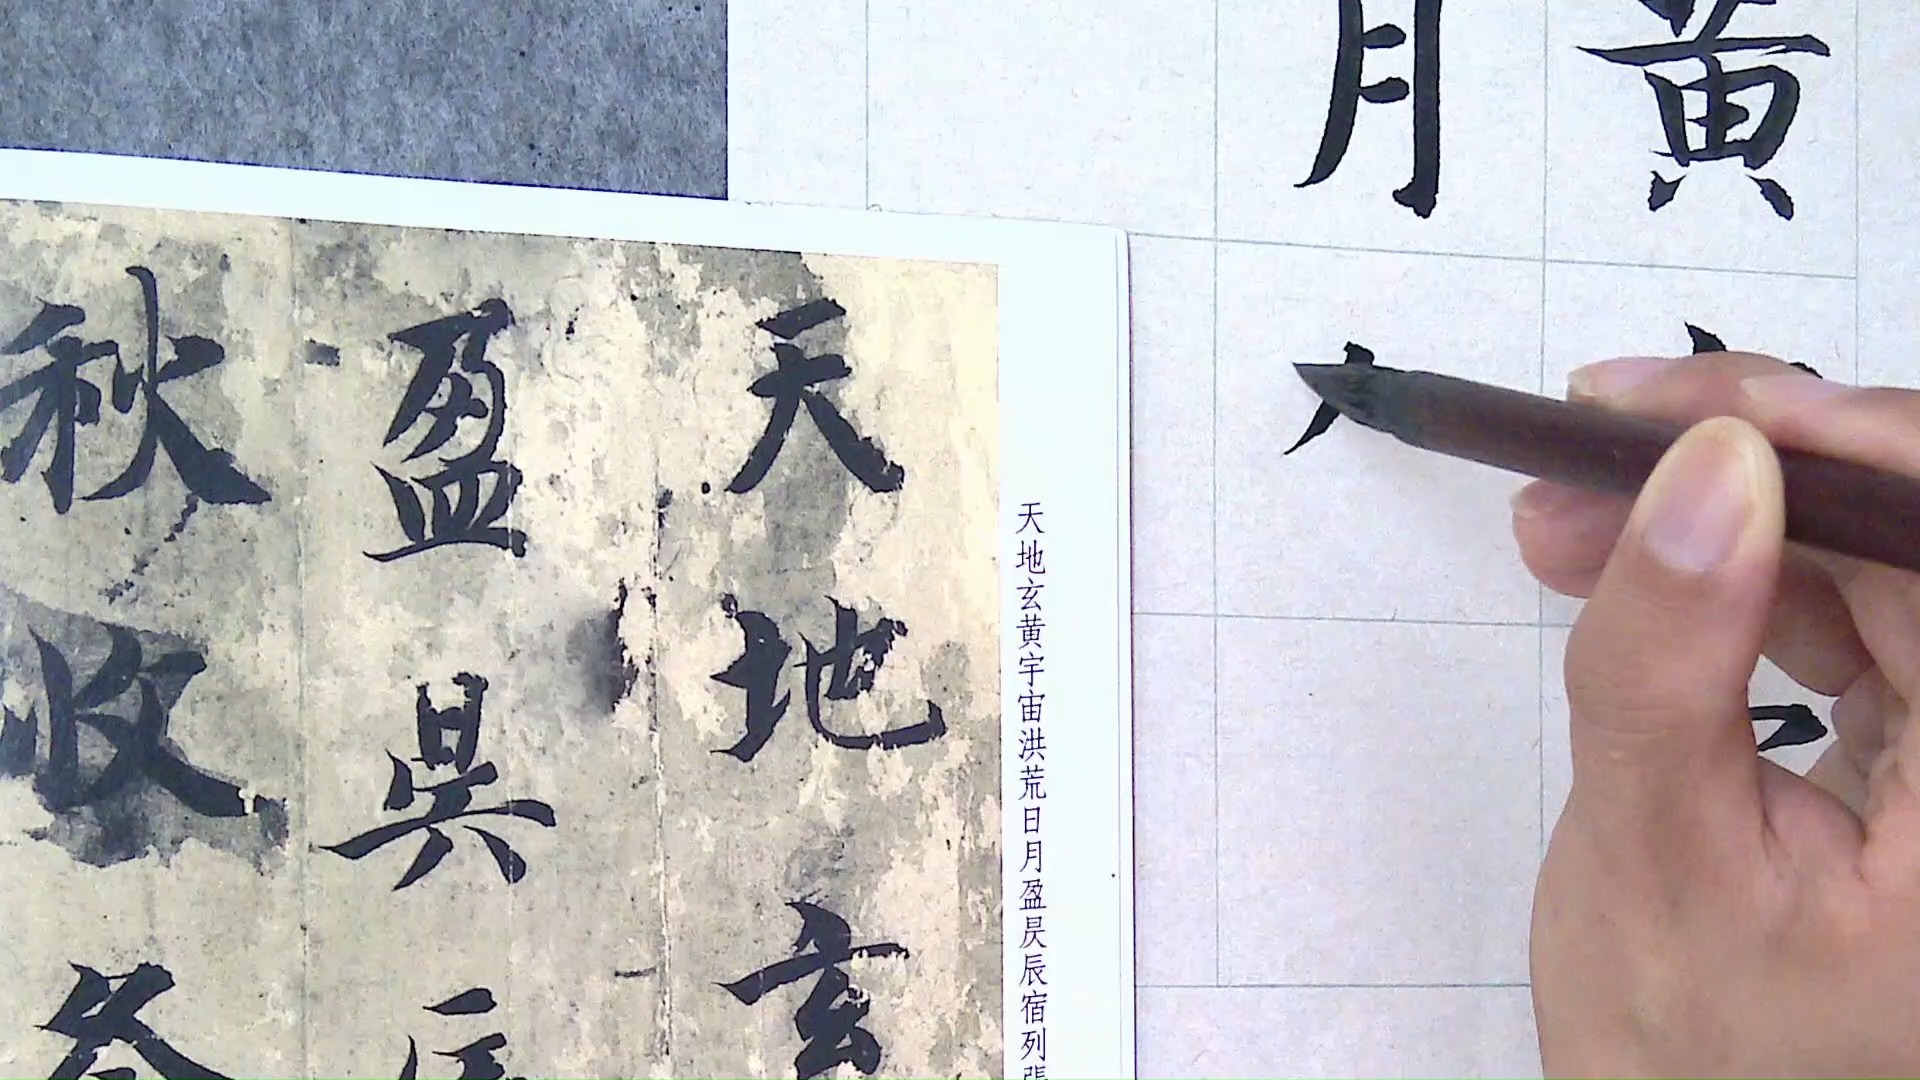 黄
月
天地玄黄宇宙洪荒日月盈昃辰宿列張
天地玄
盈昃
秋收冬